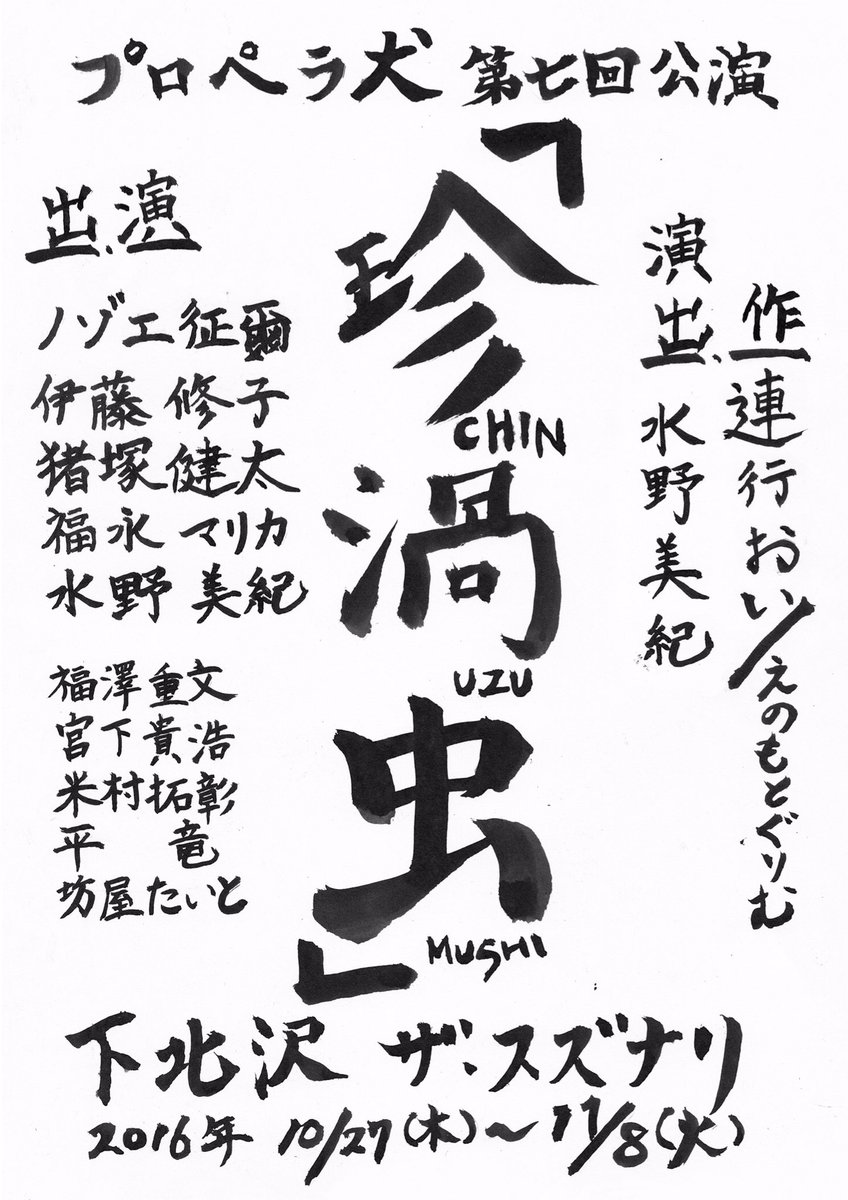 プロペラ犬 第七回公演
作 連行おい/えのもとぐりむ
演出 水野美紀
「珍渦虫」
CHIN
UZU
MUSHI
出演
ノゾエ征爾
伊藤修子
猪塚健太
福永マリカ
水野美紀
福澤重文
宮下貴浩
米村拓彰
平竜
坊屋たいと
下北沢 ザ・スズナリ
2016年 10/27(木)〜11/8(火)